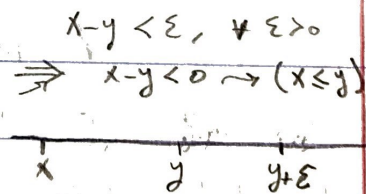 x-y < ε, ∀ ε>0
⇒ x-y < 0 → (x ≤ y)
x y y+ε